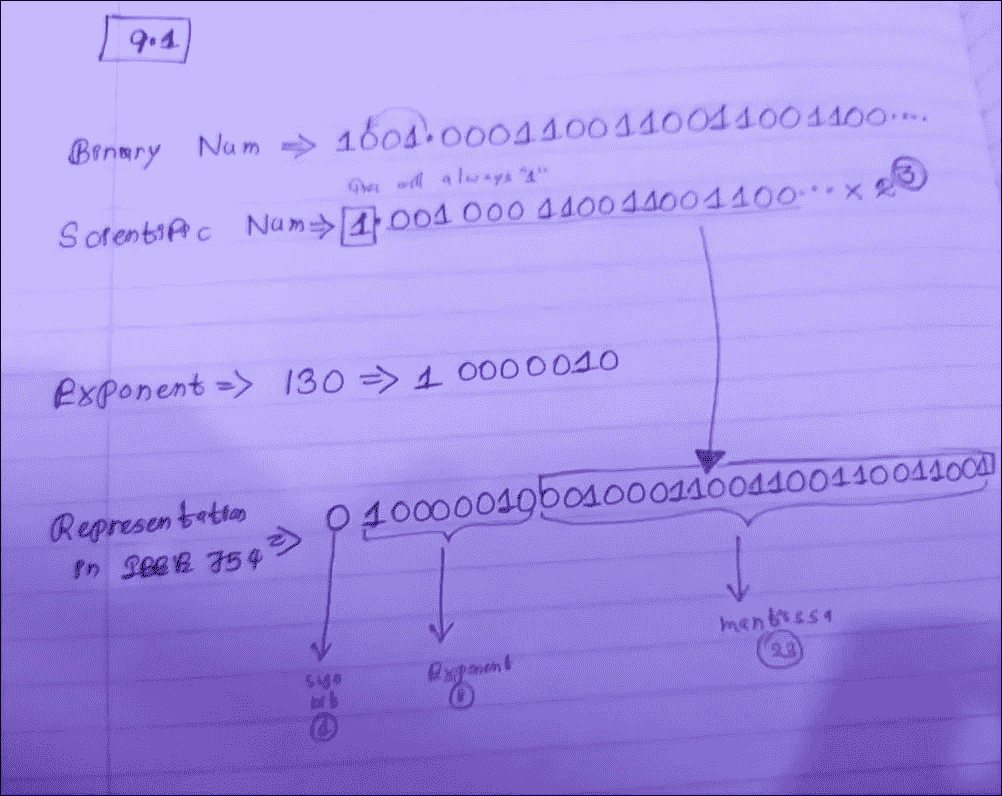 9.1
Binary Num ⇒ 1001.0001100110011001100....
This will always "1"
Scientific Num ⇒ 1.001 000 1100110011001100... × 2 3
Exponent => 130 => 1 0000010
Representation
in IEEE 754 => 0 10000010 00100011001100110011001
mantissa
23
Exponent
8
sign
bit
1